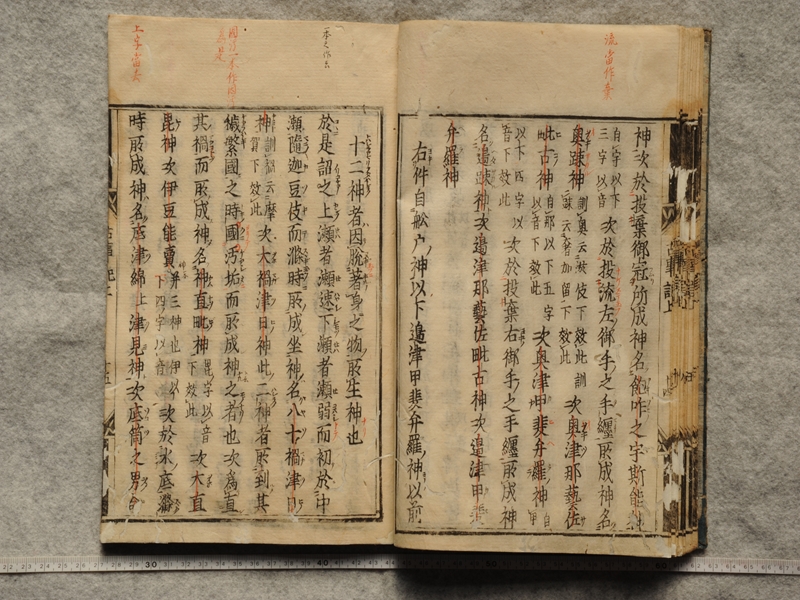 流當作棄
神次於投棄御冠所成神名飽咋之宇斯能
自宇以下
三字以音
次於投流左御手之手纏所成神名
奧踈神
訓奧云於伎下效此訓
踈云奢加留下效此
次奧津那藝佐
毗古神
自那以下五字
以音下效此
次奧津甲斐弁羅神
自
以下四字以
音下效此
次於投棄右御手之手纏所成神
名邉踈神次邉津那藝佐毗古神次邉津甲斐
弁羅神
右件自舩戶神以下邉津甲斐弁羅神以前
十二神者因脫著身之物所生神也
於是詔之上瀬者瀬速下瀬者瀬弱而初於中
瀬隨迦豆伎而滌時所成坐神名八十禍津日
神
訓禍云摩
賀下效此
次大禍津日神此二神者所到其
穢繁國之時國汚垢而所成神之者也次爲直
其禍而所成神名神直毗神
毘字以音
下效此
次大直
毘神次伊豆能賣
并三神也伊以
下四字以音
次於水底滌
時所成神名底津綿上津見神次底筒之男命
上字當去